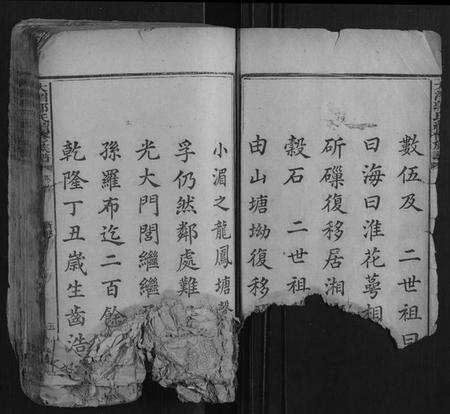 數伍及 二世祖曰
曰海曰淮花萼相
斫磔復移居湘
穀石 二世祖
由山塘坳復移
小湄之龍鳳塘
孚仍然鄰處難
光大門閭繼繼
孫羅布迄二百餘
乾隆丁丑歲生齒浩